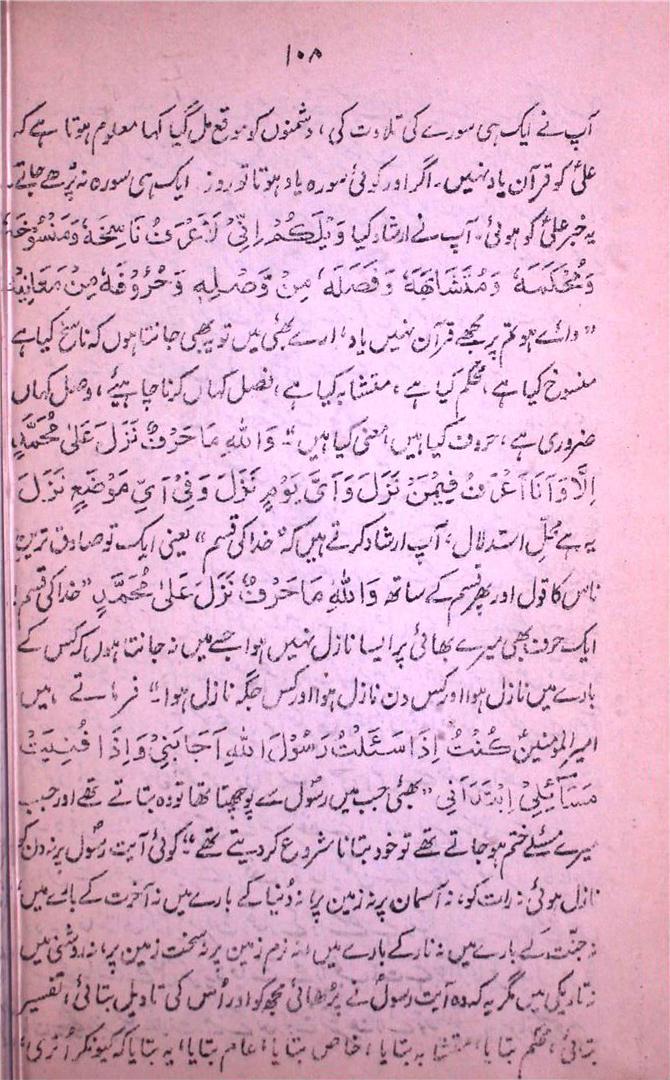 ۱۰۸
آپ نے ایک ہی سورے کی تلاوت کی، دشمنوں کو موقع مل گیا کہا معلوم ہوتا ہے کہ
علیؑ کو قرآن یاد نہیں۔ اگر اور کوئی سورہ یاد ہوتا تو روز ایک ہی سورہ نہ پڑھے جاتے۔
یہ خبر علیؑ کو ہوئی، آپ نے ارشاد کیا وَیْلَکُمْ اِنِّیْ لَاَعْرَفُ نَاسِخَهٗ وَمَنْسُوْخَهٗ
وَمُحْکَمَهٗ وَمُتَشَابَهَهٗ وَفَصْلَهٗ مِنْ وَّصْلِهٖ وَحُرُوْفَهٗ مِنْ مَعَانِیْهِ
”وائے ہو تم پر مجھے قرآن نہیں یاد، ارے بھئی میں تو یہ بھی جانتا ہوں کہ ناسخ کیا ہے
منسوخ کیا ہے، محکم کیا ہے، متشابہ کیا ہے، فصل کہاں کرنا چاہیئے، وصل کہاں
ضروری ہے، حروف کیا ہیں، معنی کیا ہیں“۔ وَاللهِ مَا حَرْفٌ نَزَلَ عَلیٰ مُحَمَّدٍ
اِلَّا وَاَنَا اَعْرَفُ فِیْمَنْ نَزَلَ وَاَیَّ یَوْمٍ نَزَلَ وَفِیْ اَیِّ مَوْضَعٍ نَزَلَ
یہ ہے محلِ استدلال، آپ ارشاد کرتے ہیں کہ ”خدا کی قسم“ یعنی ایک تو صادق ترین
ناس کا قول اور پھر قسم کے ساتھ وَاللهِ مَا حَرْفٌ نَزَلَ عَلیٰ مُحَمَّدٍ ”خدا کی قسم
ایک حرف بھی میرے بھائی پر ایسا نازل نہیں ہوا جسے میں نہ جانتا ہوں کہ کس کے
بارے میں نازل ہوا اور کس دن نازل ہوا اور کس جگہ نازل ہوا“۔ فرماتے ہیں
امیرالمومنینؑ کُنْتُ اِذَا سَئَلْتُ رَسُوْلَ اللهِ اَجَابَنِیْ وَاِذَا فُنِیَتْ
مَسَآئِلِیْ اِبْتَدَانِی ”بھئی جب میں رسول سے پوچھتا تھا تو وہ بتاتے تھے اور جب
میرے مسئلے ختم ہو جاتے تھے تو خود بتانا شروع کر دیتے تھے“۔ کوئی آیت رسول پر نہ دن کو
نازل ہوئی نہ رات کو، نہ آسمان پر نہ زمین پر، نہ دُنیا کے بارے میں نہ آخرت کے بارے میں،
نہ جنّت کے بارے میں نہ نار کے بارے میں، نہ نرم زمین پر نہ سخت زمین پر، نہ روشنی میں
نہ تاریکی میں مگر یہ کہ وہ آیت رسولؐ نے پڑھائی مجھ کو اور اُس کی تاویل بتائی، تفسیر
بتائی، محکم بتایا، متشابہ بتایا، خاص بتایا، عام بتایا، یہ بتایا کہ کیونکر اُتری،